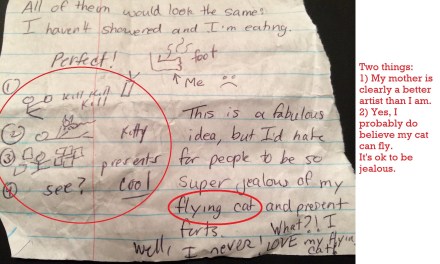 All of them would look the same:
I haven't showered and I'm eating.
Perfect!
foot
Me
①
Kill Kill
Kill
②
Kitty
③
presents
④
see?
cool
This is a fabulous
idea, but I'd hate
for people to be so
super jealous of my
flying cat and present
farts.
What?! I
Well,
I never!
LOVE my flyin
cat!
Two things:
1) My mother is
clearly a better
artist than I am.
2) Yes, I
probably do
believe my cat
can fly.
It's ok to be
jealous.